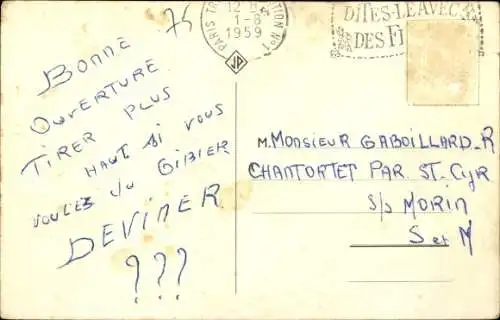 75
12 H
1-8
1959
PARIS TRI
TION Nº1
DITES-LE AVEC
DES
JP
BONNE
OUVERTURE
TIRER PLUS
HAUT SI VOUS
VOULEZ DU GIBIER
DEVINER
???
M. MONSIEUR GABOILLARD.R
CHANTORTET PAR ST-CYR
S/S MORIN
S et M